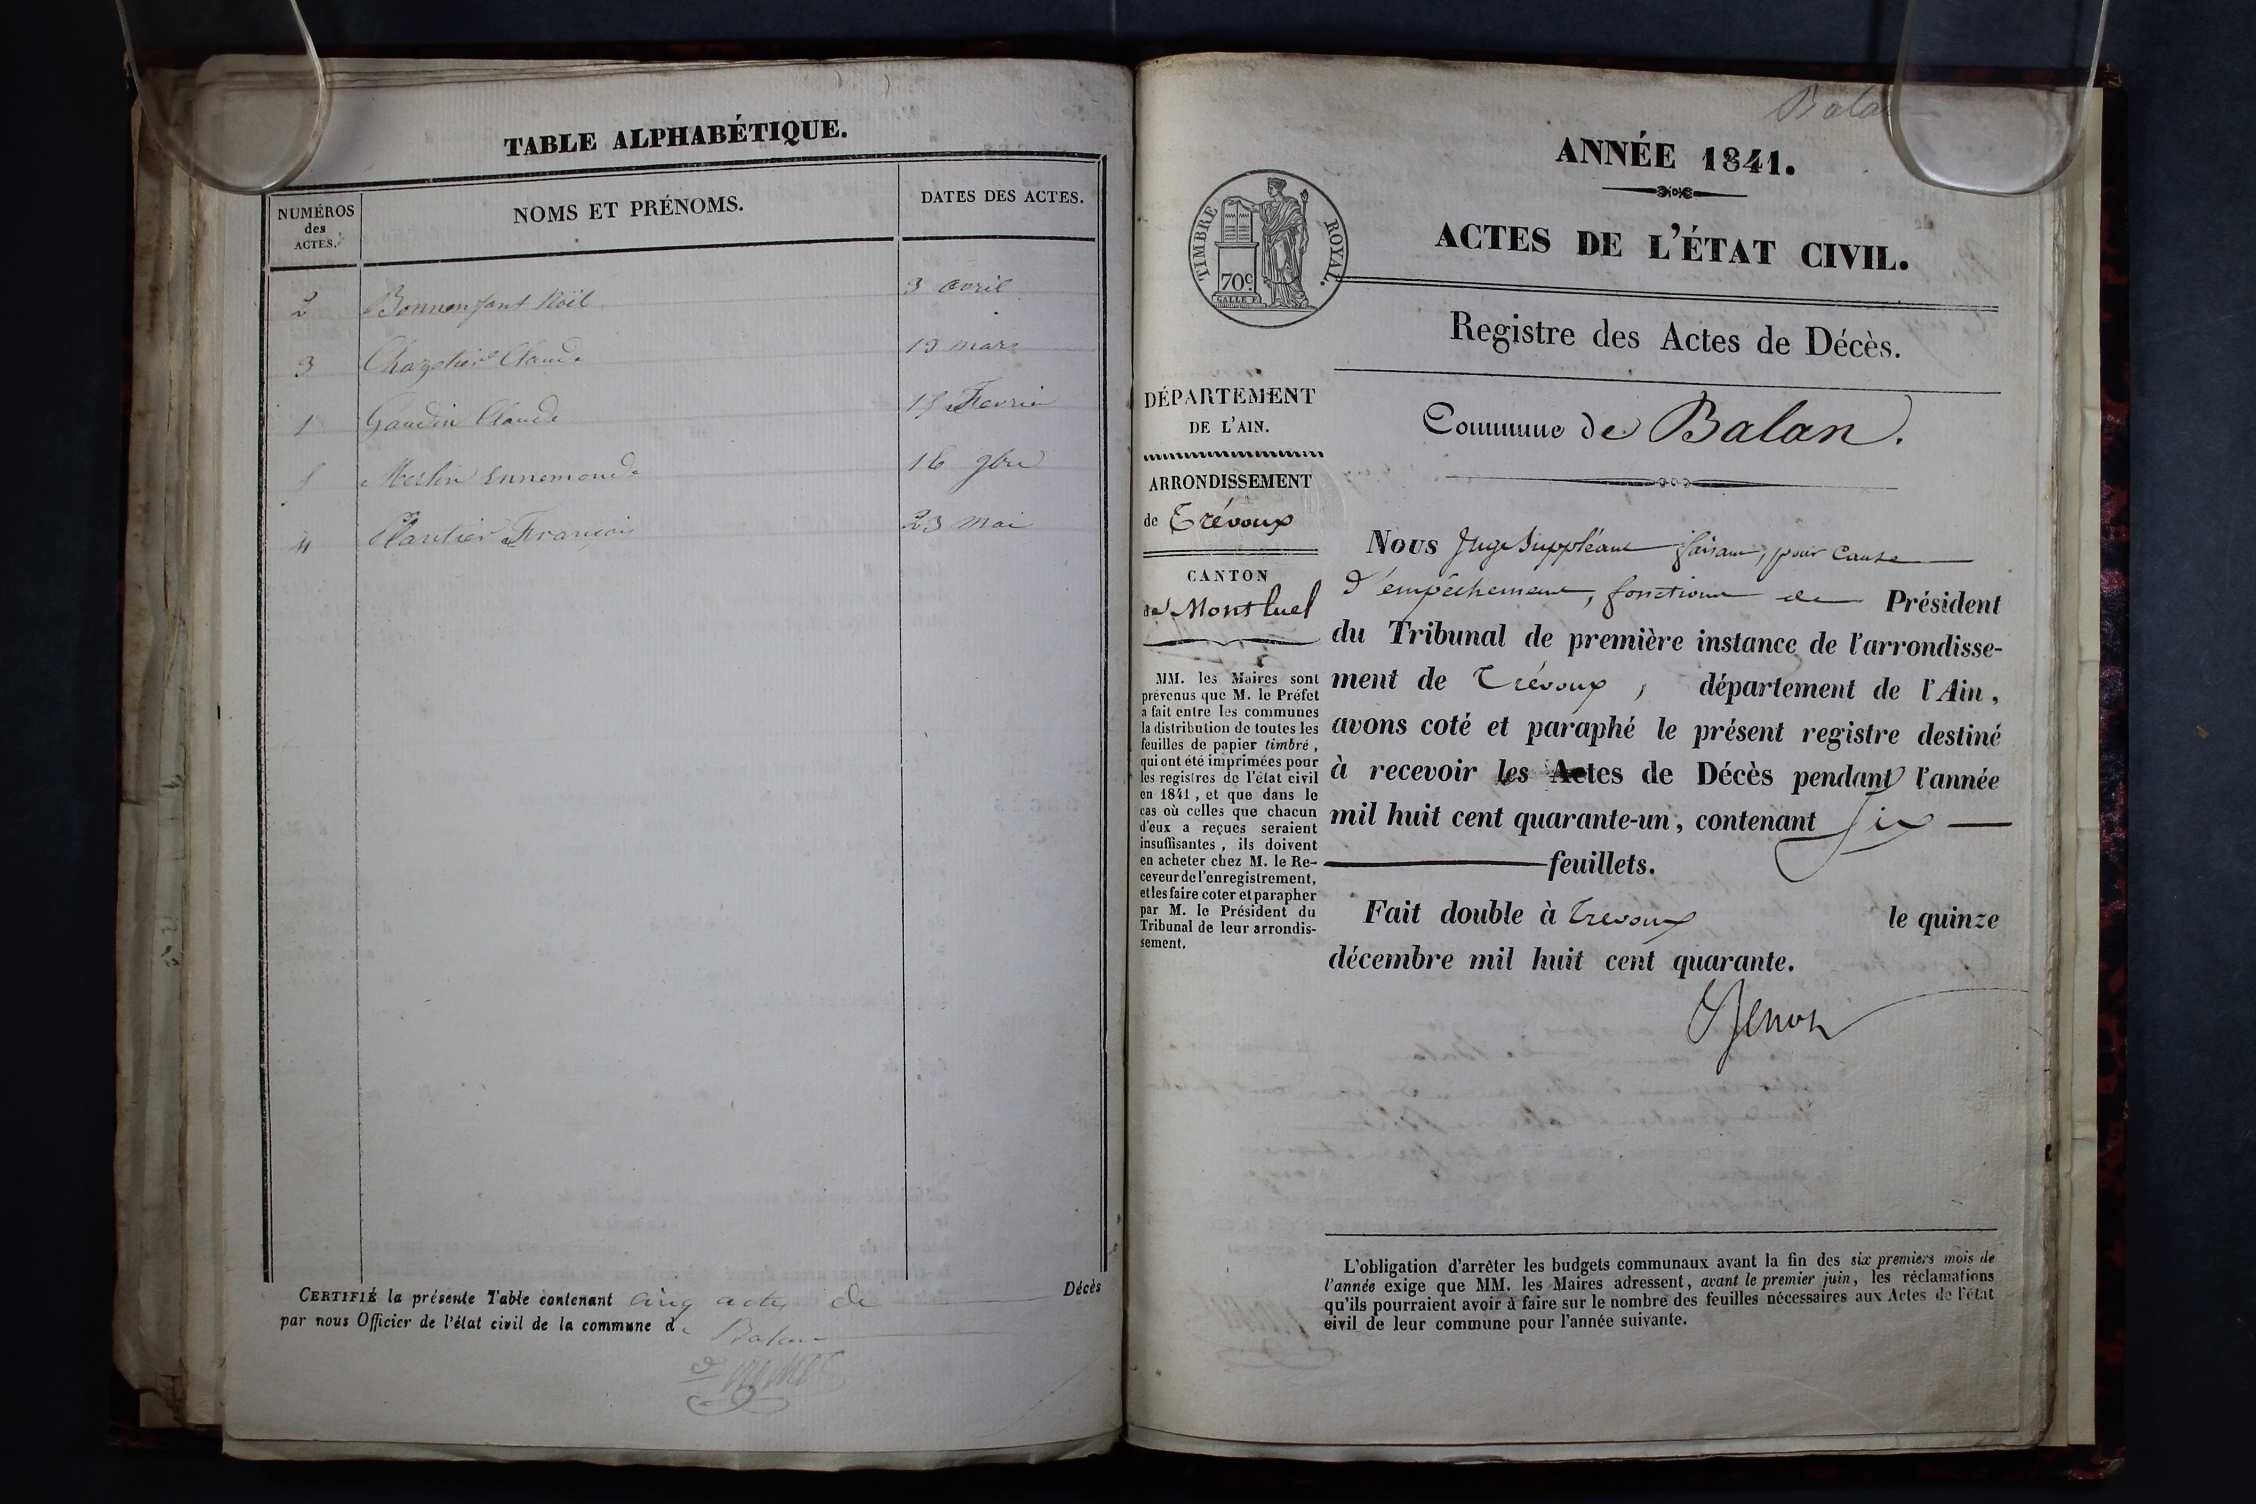 TABLE ALPHABÉTIQUE.
NUMÉROS
des
ACTES.
NOMS ET PRÉNOMS.
DATES DES ACTES.
2 Bonnenfant Noël 3 avril
3 Claude 19 mars
1 Gaudin Claude 15 Fevrier
5 Merlin Ennemonde 16 9bre
4 Plantier François 23 mai
CERTIFIÉ la présente Table contenant cinq actes de Décès
par nous Officier de l'état civil de la commune de Balan
Balan
ANNÉE 1841.
TIMBRE ROYAL.
70c.
ACTES DE L'ÉTAT CIVIL.
Registre des Actes de Décès.
DÉPARTEMENT
DE L'AIN.
ARRONDISSEMENT
de Trévoux
CANTON
de Montluel
MM. les Maires sont
prévenus que M. le Préfet
a fait entre les communes
la distribution de toutes les
feuilles de papier timbré,
qui ont été imprimées pour
les registres de l'état civil
en 1841, et que dans le
cas où celles que chacun
d'eux a reçues seraient
insuffisantes, ils doivent
en acheter chez M. le Re-
ceveur de l'enregistrement,
et les faire coter et parapher
par M. le Président du
Tribunal de leur arrondis-
sement.
Commune de Balan.
Nous Juge Suppléant faisant, pour cause
d'empêchement, fonctions de Président
du Tribunal de première instance de l'arrondisse-
ment de Trévoux, département de l'Ain,
avons coté et paraphé le présent registre destiné
à recevoir les Actes de Décès pendant l'année
mil huit cent quarante-un, contenant Six
feuillets.
Fait double à Trevoux le quinze
décembre mil huit cent quarante.
L'obligation d'arrêter les budgets communaux avant la fin des six premiers mois de
l'année exige que MM. les Maires adressent, avant le premier juin, les réclamations
qu'ils pourraient avoir à faire sur le nombre des feuilles nécessaires aux Actes de l'état
civil de leur commune pour l'année suivante.